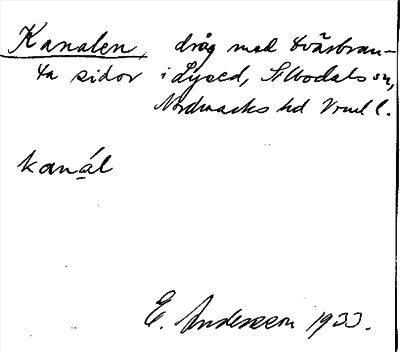 Kanalen, dråg med tväsbran-
ta sidor i Lysed, Silbodals sn,
Nordmarks hd Vrml l.
kanál
E. Andersson 1933.